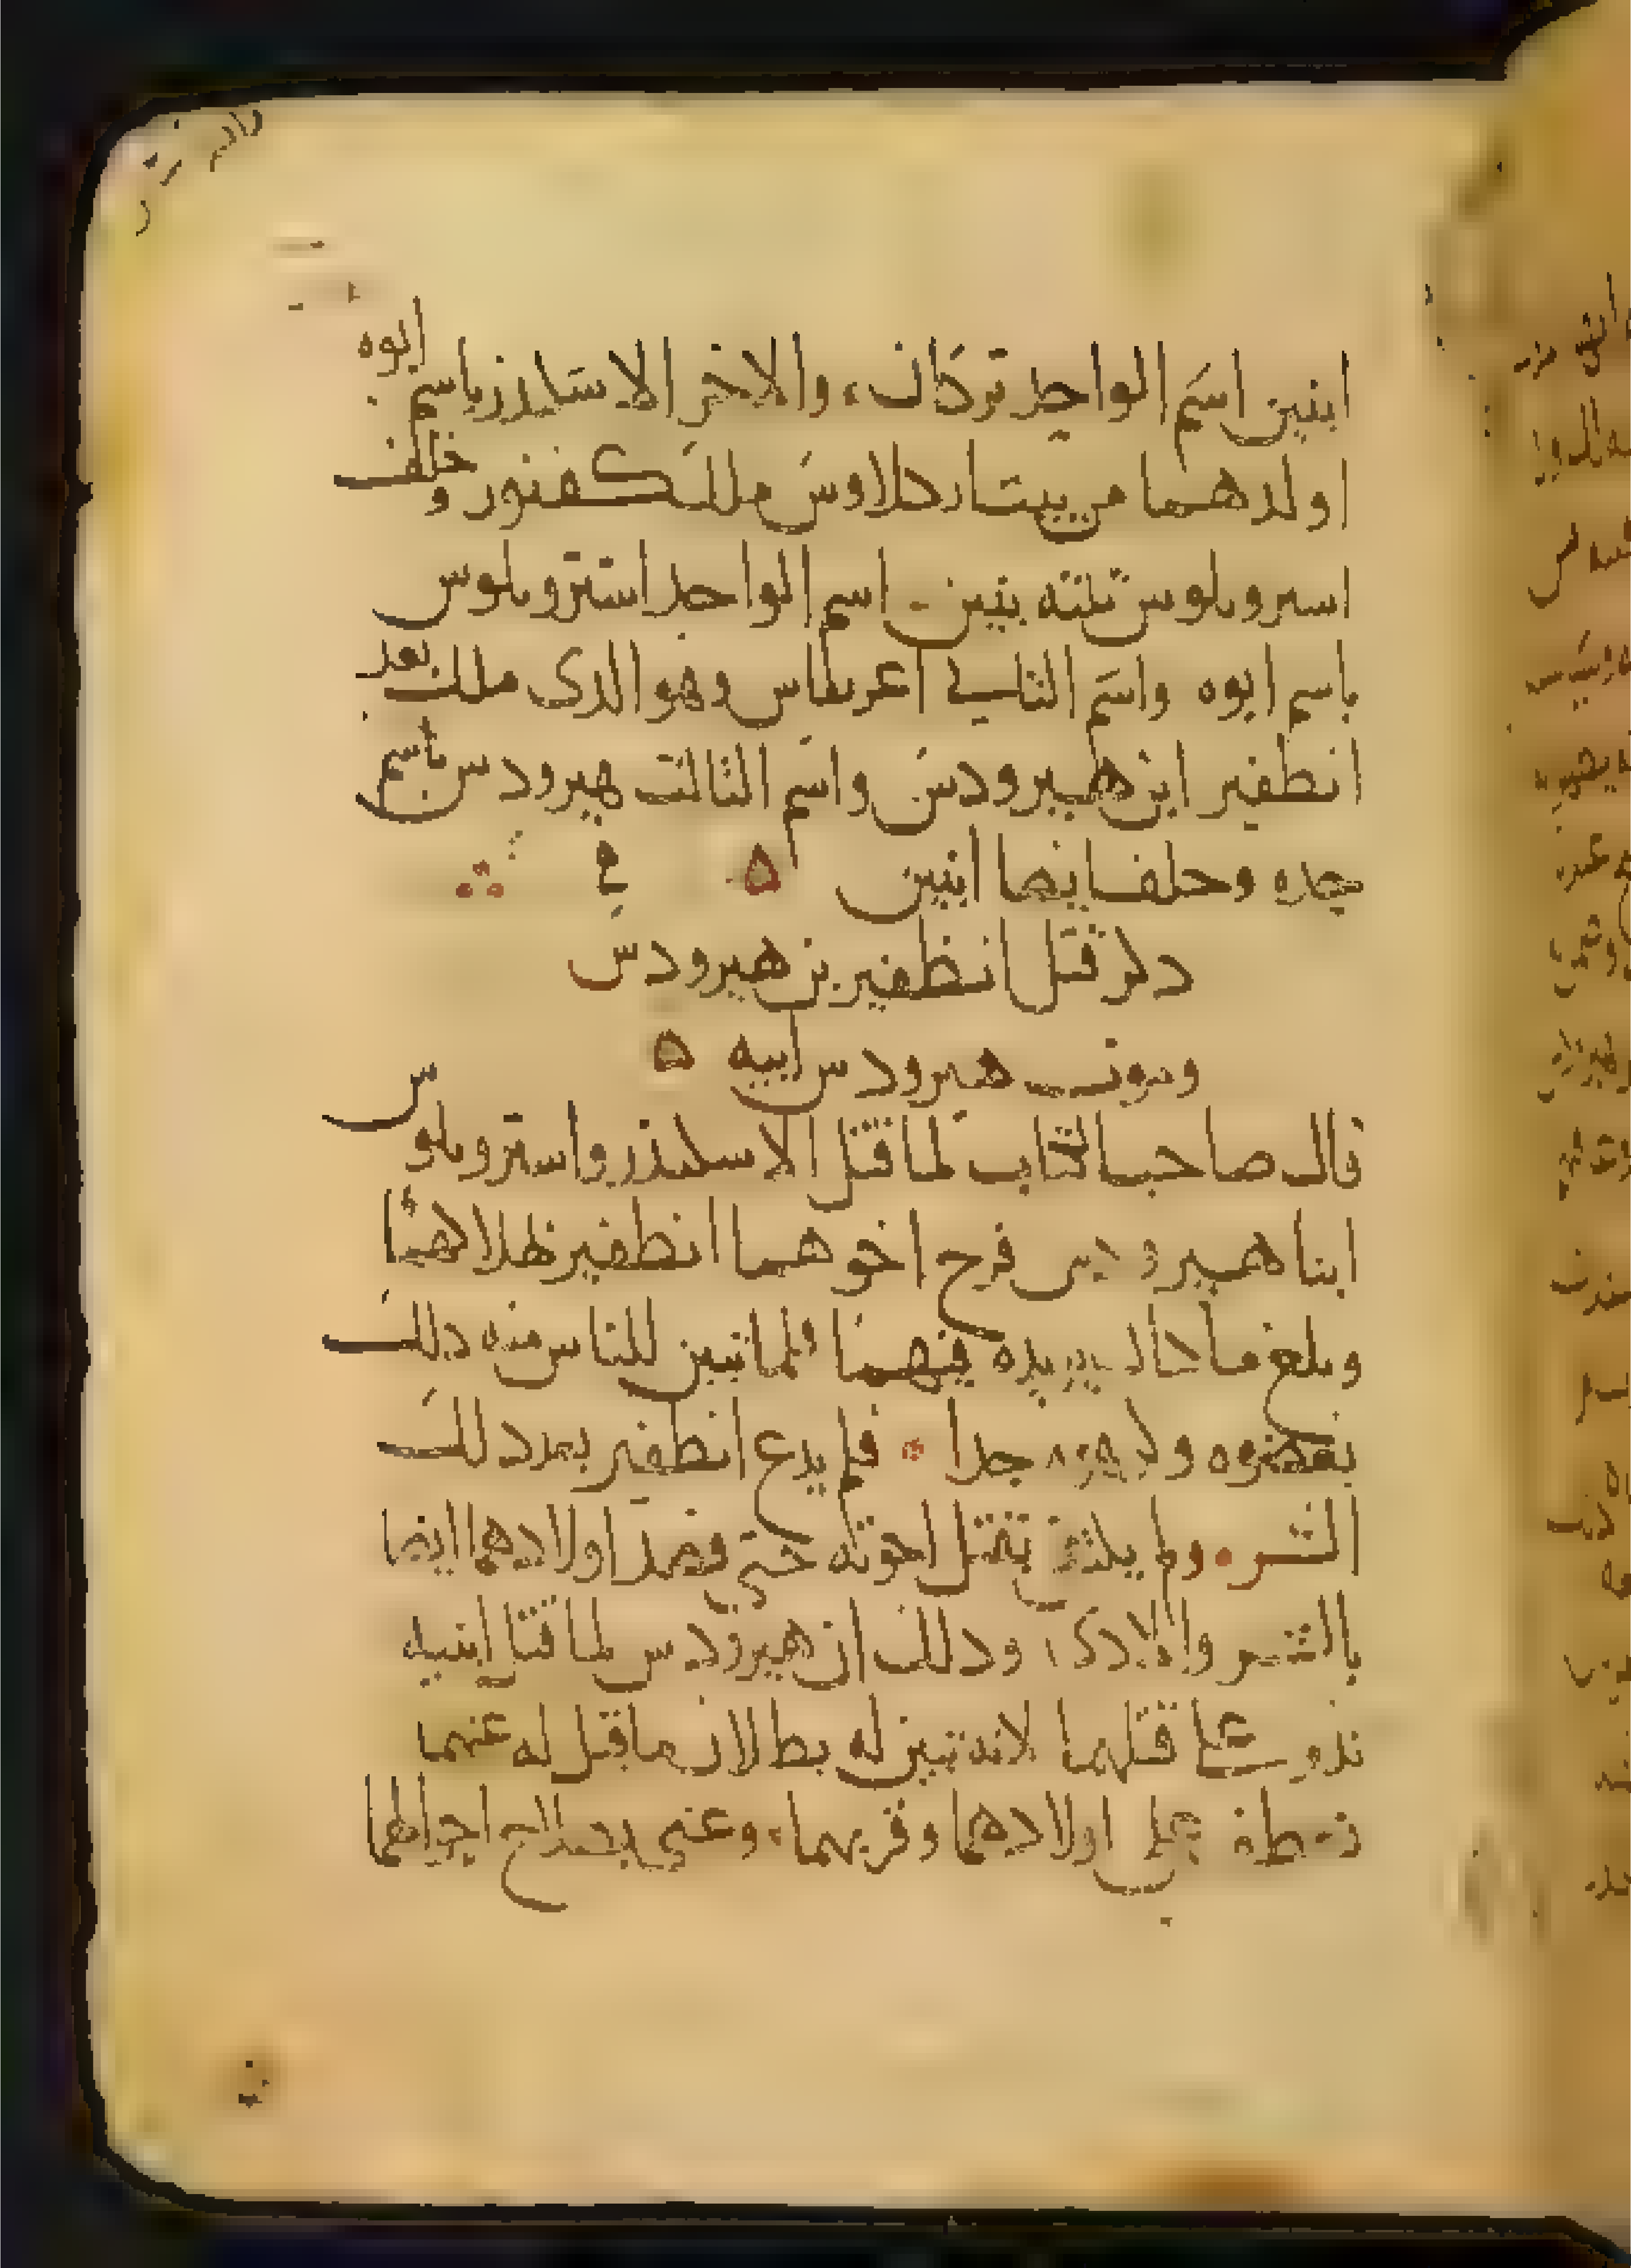 ابنين اسم الواحد تركان، والاخر الاسكندر باسم ابوه
اولدهما من بنت اركلاوس ملك كفنور وخلف
استروبلوس ثلثه بنين اسم الواحد استروبلوس
باسم ابوه واسم الثاني اغربطاس وهو الدى ملك بعد
انطفير ابن هيرودس واسم الثالث هيرودس باسم
جده وخلف ايضا ابنين ٥ في
دكر قتل انطفير بن هيرودس
وموت هيرودس ابيه ٥
قال صاحب الكتاب لما قتل الاسكندر واستروبلوس
ابنا هيرودس فرح اخوهما انطفير بهلاكهما
وبلغ ما كان يريده فيهما فلما تبين للناس منه دلك
بغضوه وكرهوه جدا فلم يدع انطفير بعد دلك
الشر ولم يكتف بقتل اخوته حتى قصد اولادهما ايضا
بالشر والادى، ودلك ان هيرودس لما قتل ابنيه
ندم على قتلهما لانه تبين له بطلان ما قيل له عنهما
فعطف على اولادهما وقربهما، وعني بصلاح احوالهما